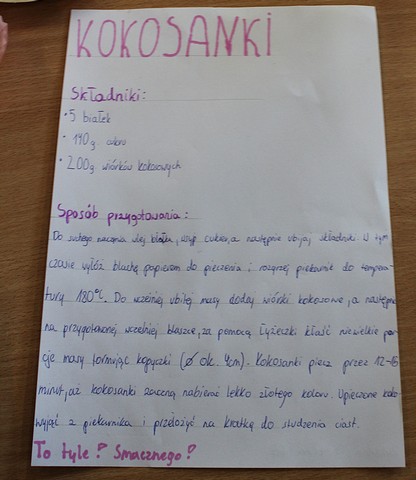 KOKOSANKI
Składniki:
• 5 białek
• 140g cukru
• 200g wiórków kokosowych
Sposób przygotowania:
Do suchego naczynia wlej białka, wsyp cukier, a następnie ubijaj składniki. W tym
czasie wyłóż blachę papierem do pieczenia i rozgrzej piekarnik do tempera-
tury 180°C. Do wcześniej ubitej masy dodaj wiórki kokosowe, a następnie
na przygotowanej wcześniej blaszce, za pomocą łyżeczki kłaść niewielkie por-
cje masy formując kopczyki (⌀ ok. 4cm). Kokosanki piecz przez 12-15
minut, aż kokosanki zaczną nabierać lekko złotego koloru. Upieczone
wyjąć z piekarnika i przełożyć na kratkę do studzenia ciast.
To tyle! Smacznego!